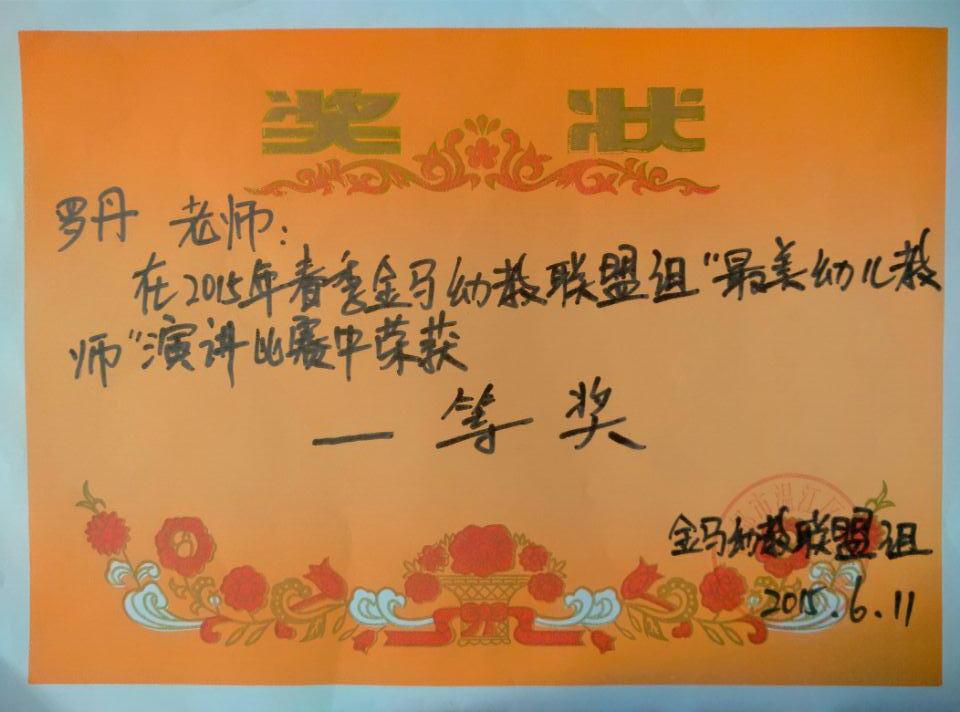 奖 状
罗丹 老师：
在2015年春季金马幼教联盟组“最美幼儿教
师”演讲比赛中荣获
一等奖
市温江区
金马幼教联盟组
2015.6.11